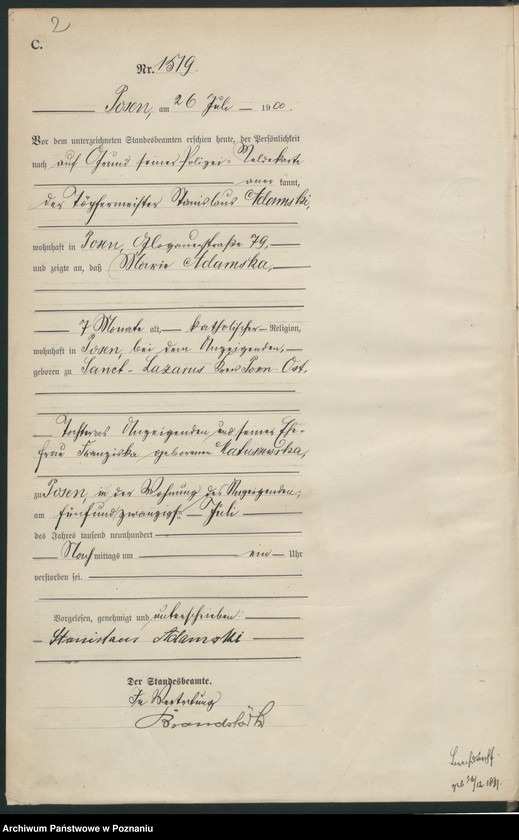 2
C.
Nr. 1519.
Posen, am 26 Juli 1900.
Vor dem unterzeichneten Standesbeamten erschien heute, der Persönlichkeit
nach auf Grund seiner Polizei-Meldekarte
aner kannt,
der Töpfermeister Stanislaus Adamski,
wohnhaft in Posen, Glogauerstraße 79,
und zeigte an, daß Marie Adamska,
7 Monate alt, katholischer Religion,
wohnhaft in Posen, bei dem Anzeigenden,
geboren zu Sanct-Lazarus Kreis Posen Ost,
Tochter des Anzeigenden und seiner Ehe-
frau Franziska geborenen
zu Posen, in der Wohnung des Anzeigenden,
am fünfundzwanzigsten Juli
des Jahres tausend neunhundert
Nach mittags um ein Uhr
verstorben sei.
Vorgelesen, genehmigt und unterschrieben
Stanislaus Adamski
Der Standesbeamte.
In Vertretung
geb 1891
Archiwum Państwowe w Poznaniu